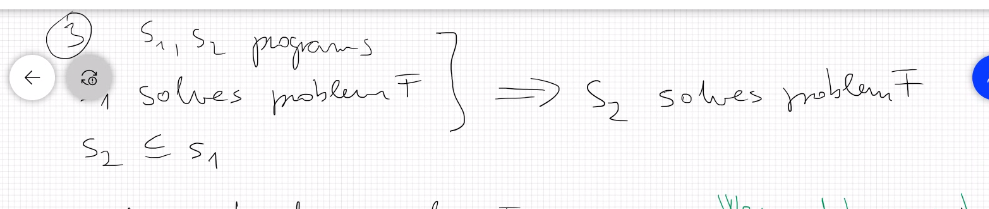 3 S1, S2 programs
1 solves problem F } ⟹ S2 solves problem F
S2 ⊆ S1